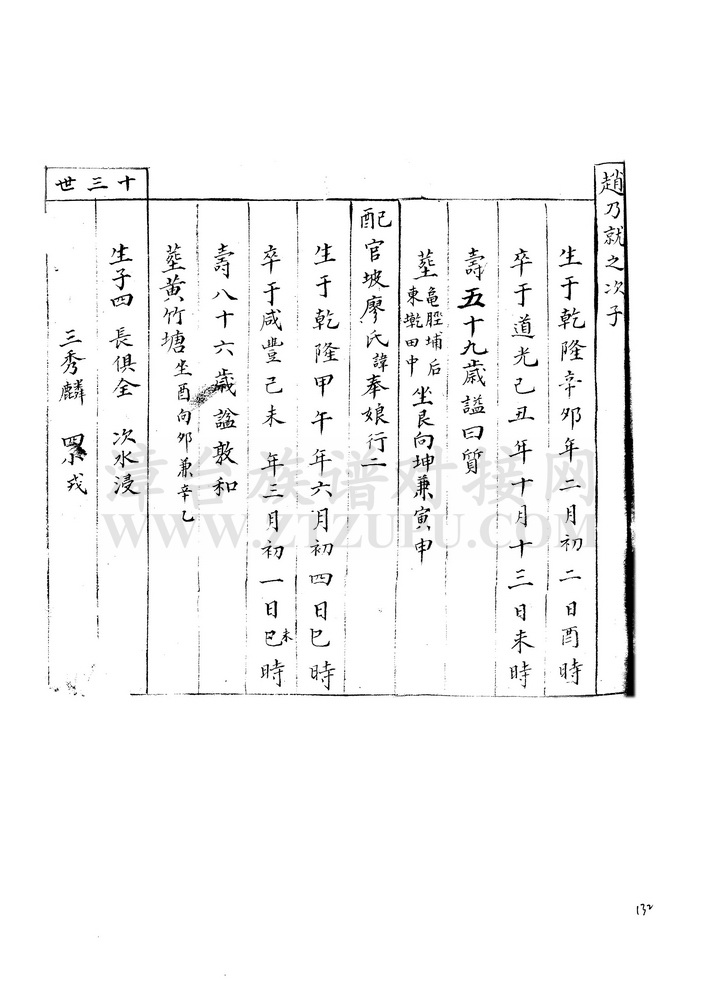 趙乃就之次子
生于乾隆辛卯年二月初二日酉時
卒于道光己丑年十月十三日未時
壽五十九歲諡曰質
塟龜脛埔后東墘田中坐艮向坤兼寅申
配官坡廖氏諱奉娘行二
生于乾隆甲午年六月初四日巳時
卒于咸豐己未年三月初一日巳未時
壽八十六歲諡敦和
塟黃竹塘坐酉向卯兼辛乙
十三世
生子四 長俱全 次水浸
三秀麟 四 戎
漳台族谱对接网
WWW.ZTZUPU.COM
132